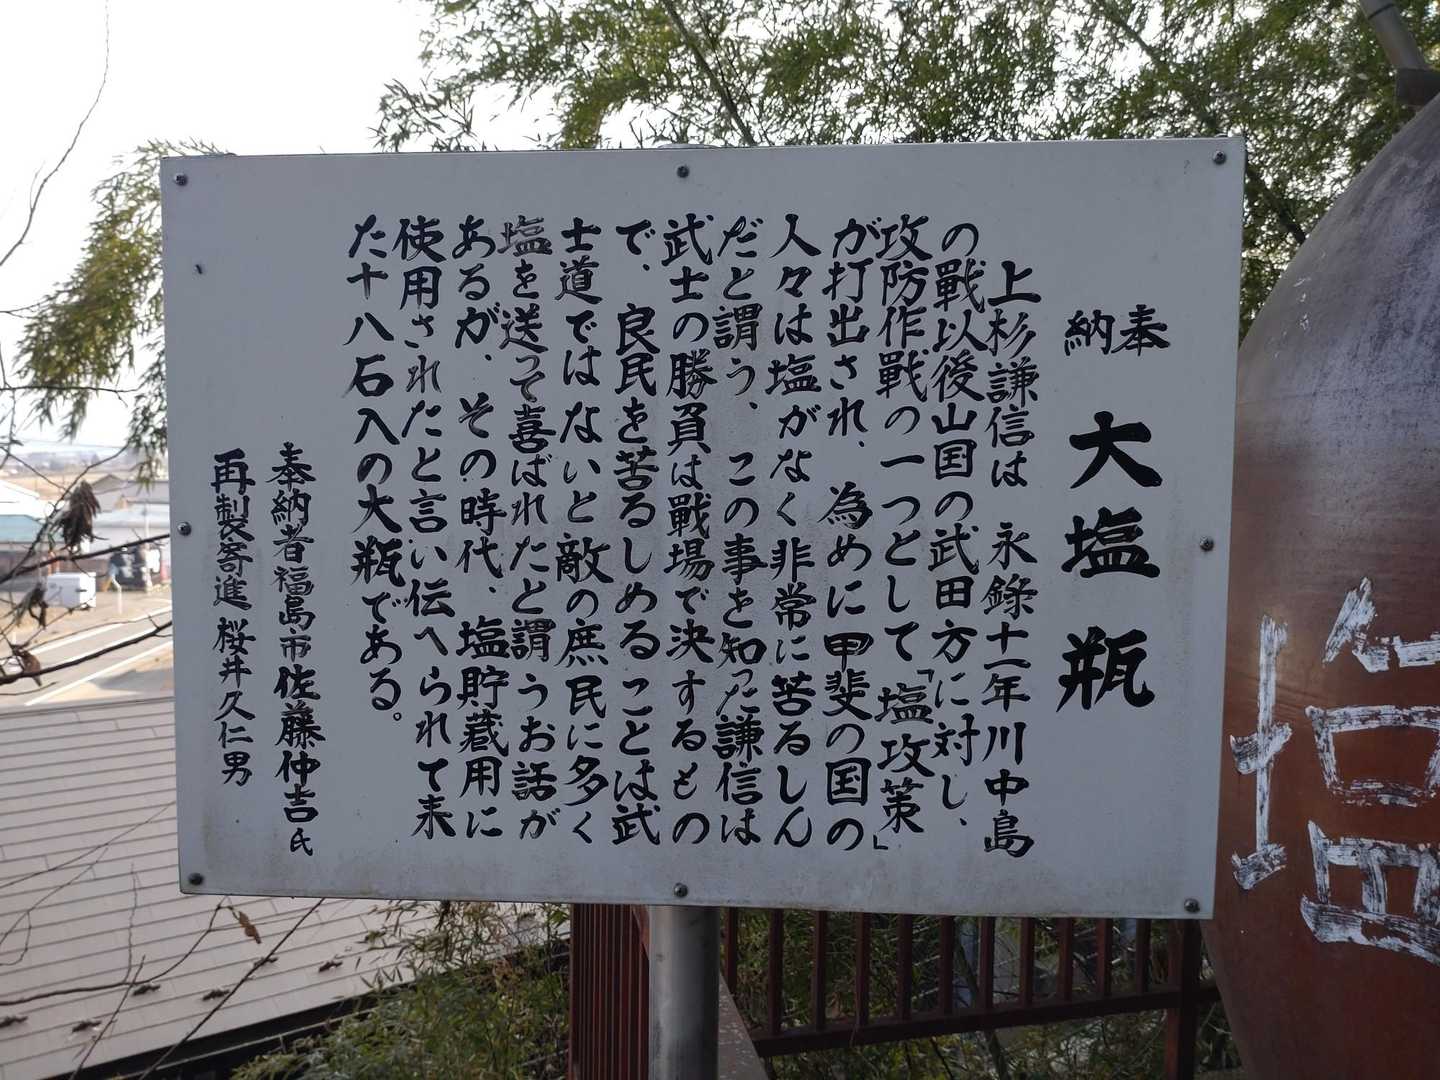 奉納
大塩瓶
上杉謙信は　永録十一年川中島
の戰以後山国の武田方に対し、
攻防作戰の一つとして「塩攻策」
が打出され、為めに甲斐の国の
人々は塩がなく非常に苦るしん
だと謂う、この事を知った謙信は
武士の勝負は戰場で決するもの
で、良民を苦るしめることは武
士道ではないと敵の庶民に多く
塩を送って喜ばれたと謂うお話が
あるが、その時代、塩貯蔵用に
使用されたと言い伝へられて来
た十八石入の大瓶である。
奉納者福島市佐藤仲吉氏
再製寄進　桜井久仁男
塩